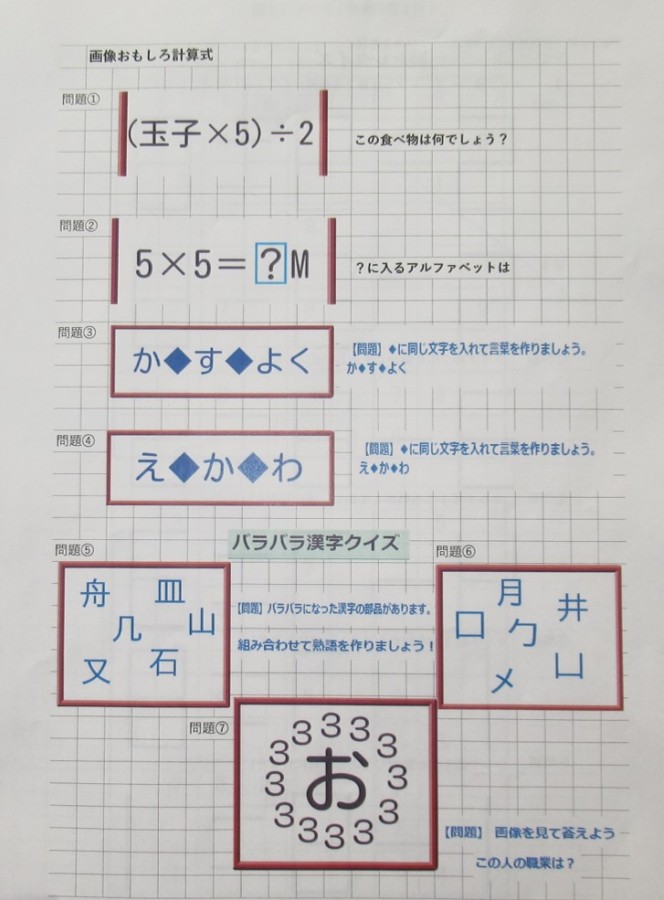 画像おもしろ計算式
問題①
(玉子×5)÷2
この食べ物は何でしょう？
問題②
5×5＝?M
？に入るアルファベットは
問題③
か◆す◆よく
【問題】♦に同じ文字を入れて言葉を作りましょう。
か♦す♦よく
問題④
え◆か◆わ
【問題】♦に同じ文字を入れて言葉を作りましょう。
え♦か♦わ
バラバラ漢字クイズ
問題⑤
舟 皿
几 山
又 石
【問題】バラバラになった漢字の部品があります。
組み合わせて熟語を作りましょう！
問題⑥
月 井
口 勹
メ 凵
問題⑦
3 3 3 3 3 3 3 3 3 3 3 3 3
お
【問題】 画像を見て答えよう
この人の職業は？